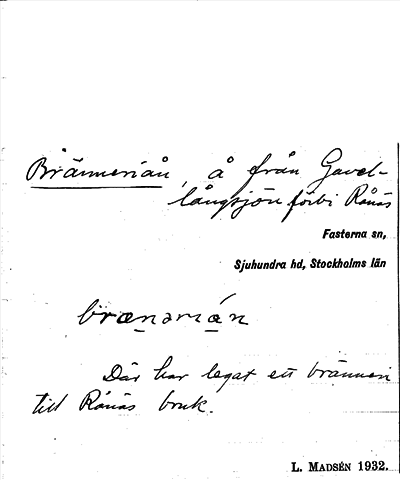 Brännerián, å från Gavel-
långsjön förbi Rånäs
Fasterna sn,
Sjuhundra hd, Stockholms län
brænərián
Där har legat ett bränneri
till Rånäs bruk.
L. MADSÉN 1932.